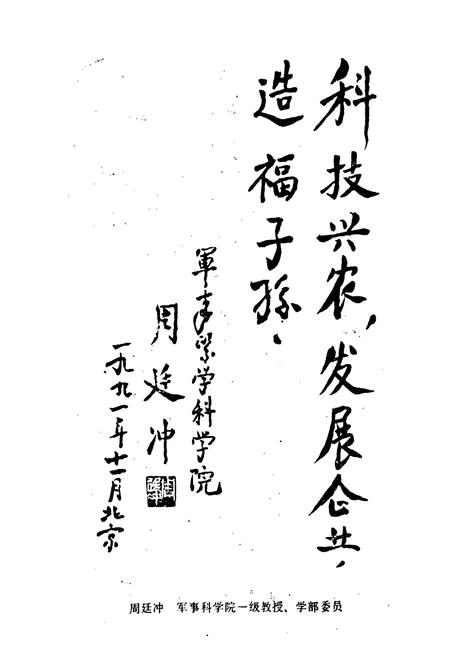 科技兴农，发展企业，
造福子孙、
軍事醫学科学院
周廷冲
一九九一年十一月北京
周廷冲　军事科学院一级教授、学部委员